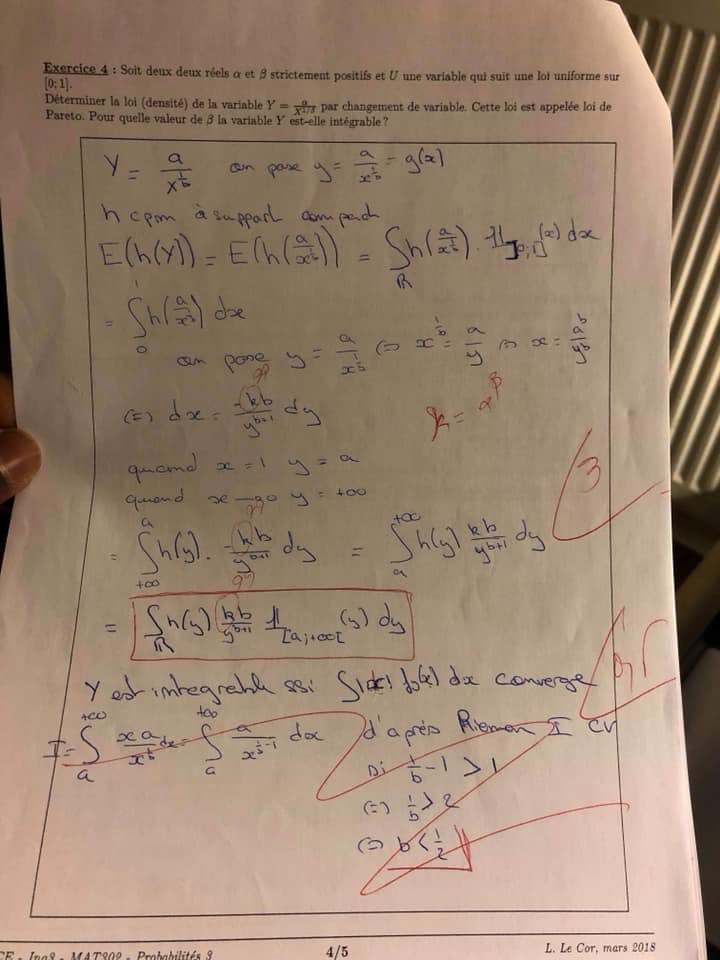 Exercice 4 : Soit deux deux réels α et β strictement positifs et U une variable qui suit une loi uniforme sur
[0; 1].
Déterminer la loi (densité) de la variable Y = α/X^{1/β} par changement de variable. Cette loi est appelée loi de
Pareto. Pour quelle valeur de β la variable Y est-elle intégrable ?
Y = a/x^{1/b} on pose y = a/x^{1/b} = g(x)
h cpm à support compact
E(h(Y)) = E(h(a/x^{1/b})) = ∫_ℝ h(a/x^{1/b}) . 𝟙_{]0;1]}(x) dx
= ∫_0^1 h(a/x^{1/b}) dx
on pose y = a/x^{1/b} ⇔ x^{1/b} = a/y ⇔ x = a^b/y^b
(⇔) dx = -kb/y^{b+1} dy k = α^β
3
quand x = 1 y = a
quand x → 0 y = +∞
= ∫_{+∞}^a h(y) . -kb/y^{b+1} dy = ∫_a^{+∞} h(y) kb/y^{b+1} dy
= ∫_ℝ h(y) kb/y^{b+1} 𝟙_{[a;+∞[}(y) dy
Y est integrable ssi ∫|x| f_Y(x) dx converge
I = ∫_a^{+∞} x a/x^{1/b} dx = ∫_a^{+∞} a/x^{1/b -1} dx d'après Rieman I CV
si 1/b - 1 > 1
(⇔) 1/b > 2
(⇔) b < 1/2
CE - Ing3 - MAT302 - Probabilités 3
4/5
L. Le Cor, mars 2018